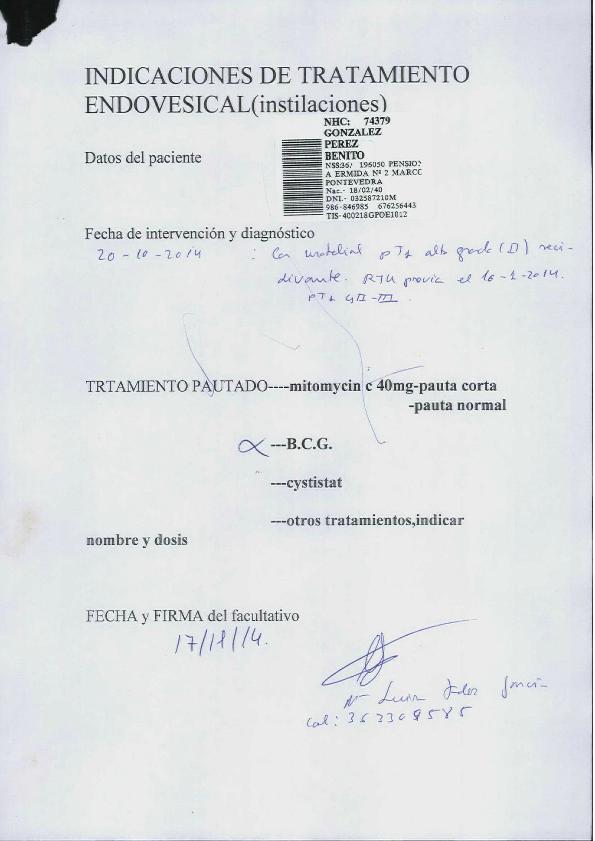 INDICACIONES DE TRATAMIENTO
ENDOVESICAL(instilaciones)
NHC: 74379
GONZALEZ
PEREZ
BENITO
Datos del paciente
NSS:36/ 196050 PENSIO
A ERMIDA Nº 2 MARCO
PONTEVEDRA
Nac.- 18/02/40
DNI.- 032587210M
986-846985 676256443
TIS-400218GPOE1012
Fecha de intervención y diagnóstico
20-10-2014 : Ca urotelial pT1 alto grado (II) reci-
divante. RTU previa el 16-1-2014.
pT1 GII-III.
TRTAMIENTO PAUTADO----mitomycin c 40mg-pauta corta
-pauta normal
---B.C.G.
---cystistat
---otros tratamientos,indicar
nombre y dosis
FECHA y FIRMA del facultativo
17/11/14.
García
Col: 363309585